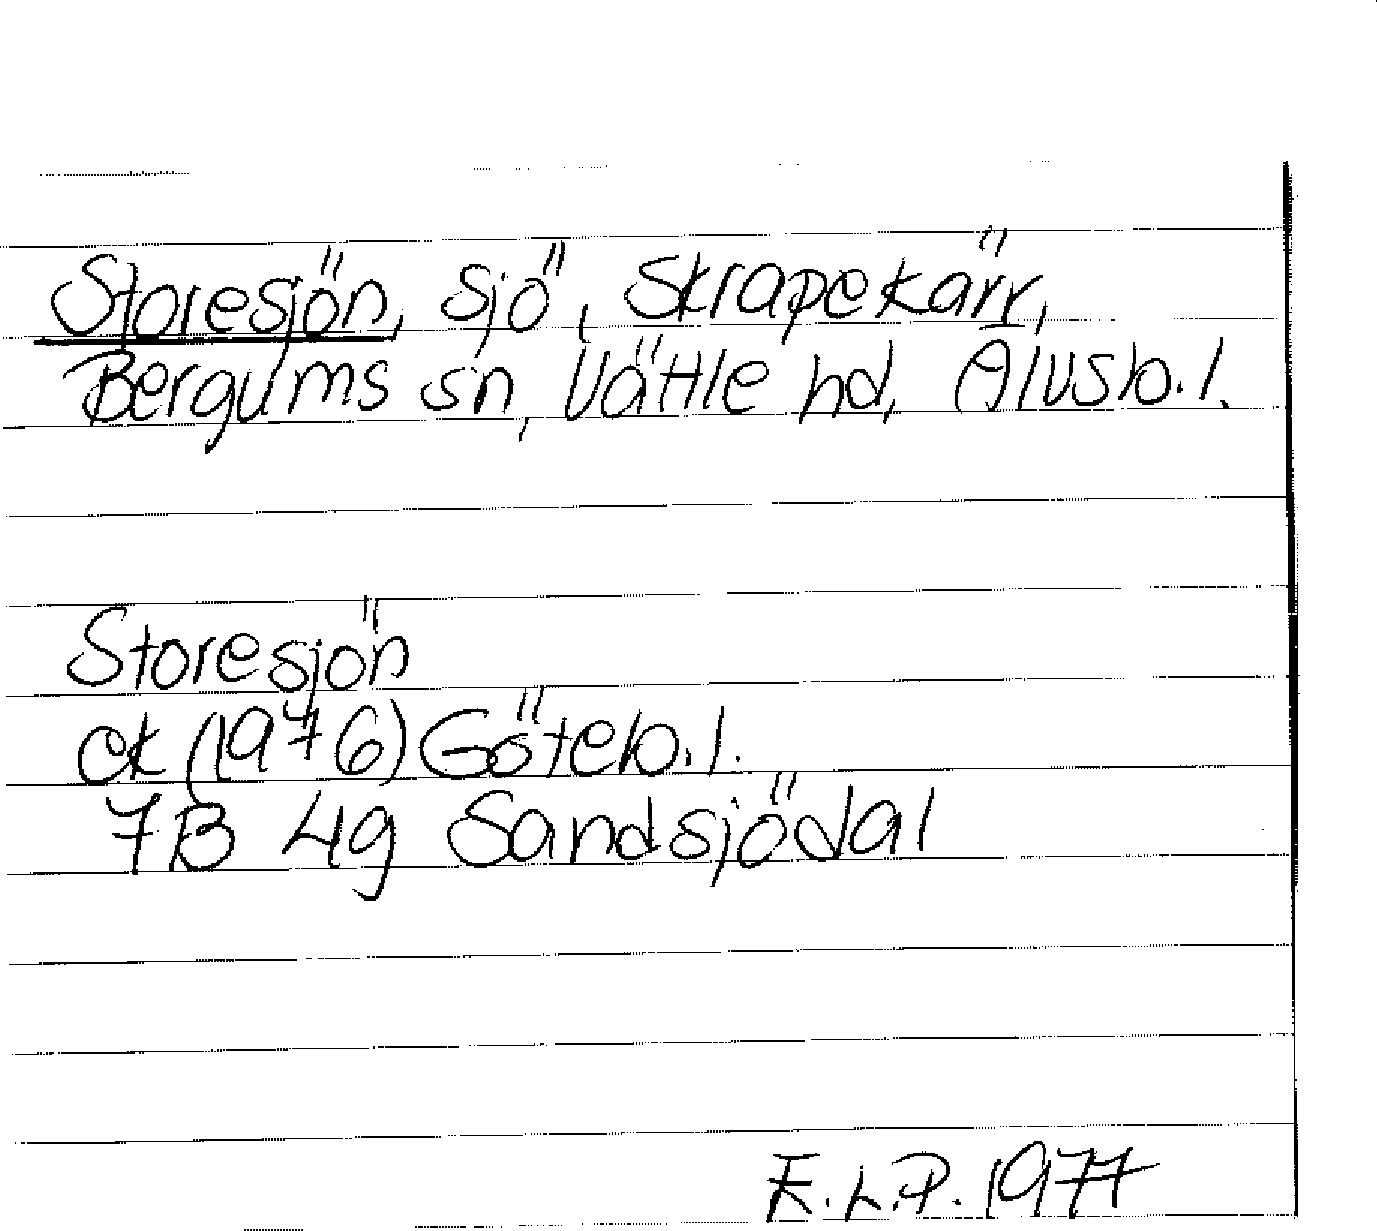 Storesjön, sjö, Skrapekärr,
Bergums sn, Vättle hd, Älvsb. l.
Storesjön
ek (1976) Göteb. l.
7B 4g Sandsjödal
E.L.P. 1977